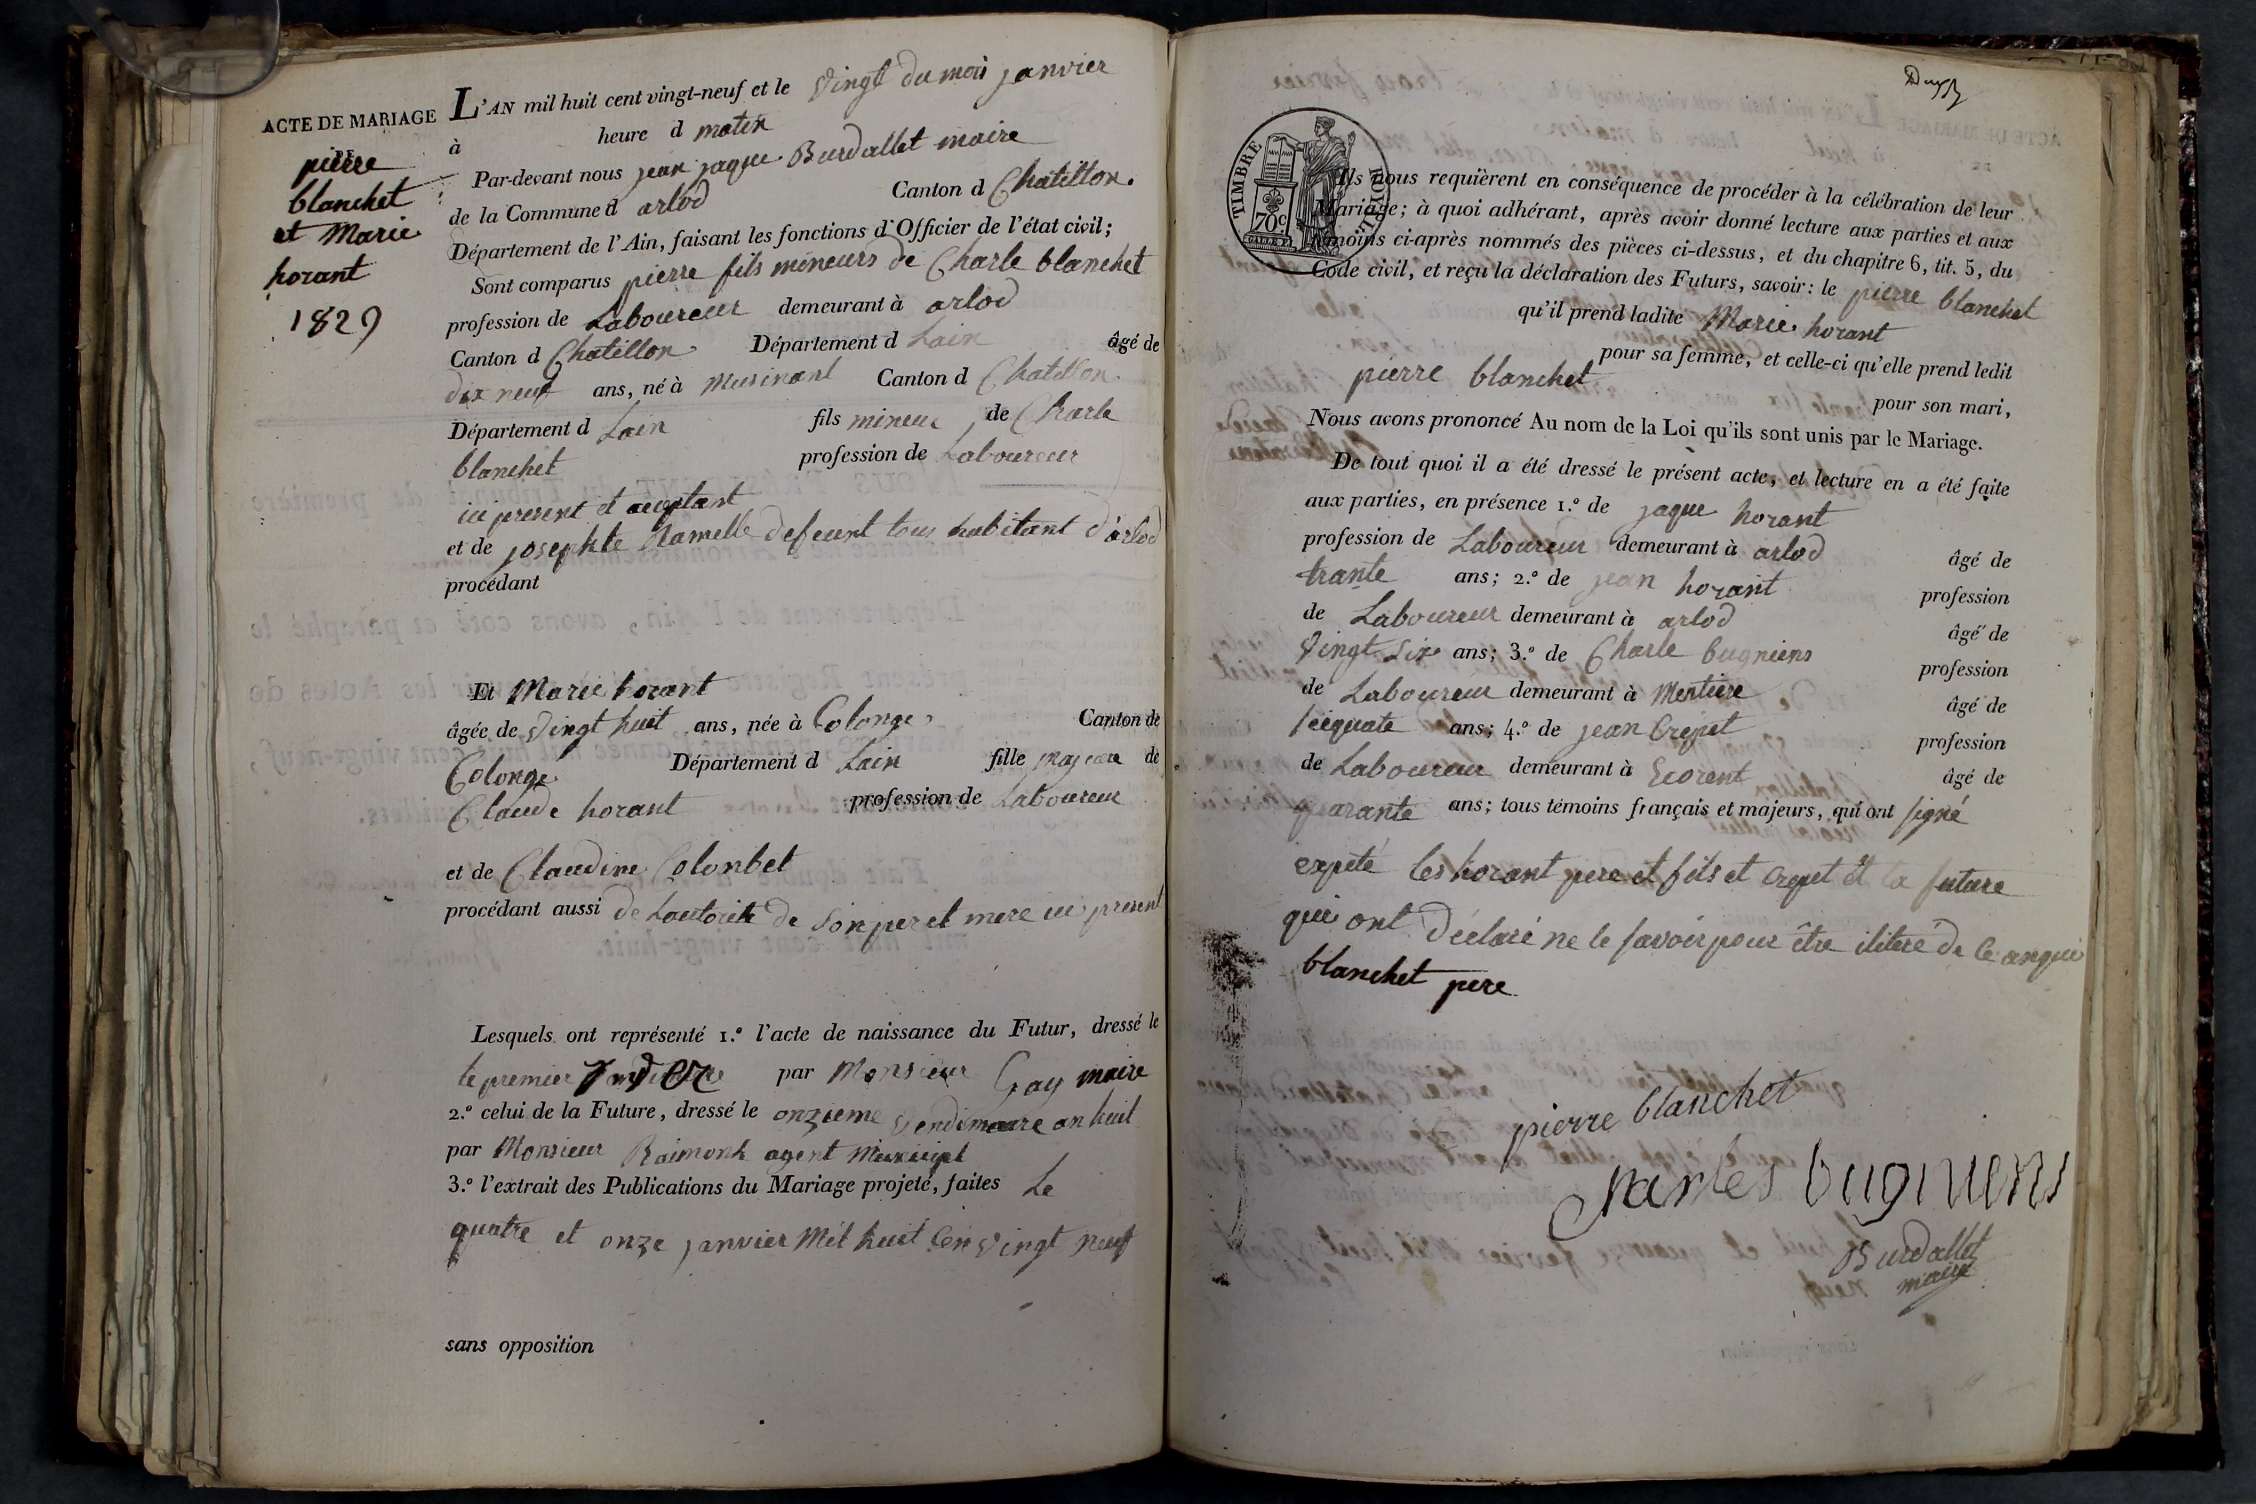 ACTE DE MARIAGE
DE
pierre
blanchet
et Marie
horant
1829
L'AN mil huit cent vingt-neuf et le vingt du mois janvier
à heure d matin
Par-devant nous jean jaque Burdallet maire
de la Commune d arlod Canton d Chatillon.
Département de l'Ain, faisant les fonctions d'Officier de l'état civil;
Sont comparus pierre fils mineurs de Charle blanchet
profession de Laboureur demeurant à arlod
Canton d Chatillon Département d Lain âgé de
dix neuf ans, né à Musinant Canton d Chatillon.
Département d Lain fils mineur de Charle
blanchet profession de Laboureur
ici present et aceptant
et de josephte Mamelle defeunt tous habitant d'arlod
procédant
Et Marie horant
âgée de vingt huit ans, née à Colonge Canton de
Colonge Département d Lain fille majeure de
Claude horant profession de Laboureur
et de Claudine Colonbet
procédant aussi de Lautorite de son per et mere ici present
Lesquels ont représenté 1.º l'acte de naissance du Futur, dressé le
le premier par Monsieur Gay maire
2.º celui de la Future, dressé le onzieme vendimaire an huit
par Monsieur Raimont agent municipal
3.º l'extrait des Publications du Mariage projeté, faites Le
quatre et onze janvier Mil huit Cen vingt neuf
sans opposition
TIMBRE ROYAL
70c
Ils nous requièrent en conséquence de procéder à la célébration de leur
Mariage; à quoi adhérant, après avoir donné lecture aux parties et aux
témoins ci-après nommés des pièces ci-dessus, et du chapitre 6, tit. 5, du
Code civil, et reçu la déclaration des Futurs, savoir: le pierre blanchet
qu'il prend ladite Marie horant
pour sa femme, et celle-ci qu'elle prend ledit
pierre blanchet pour son mari,
Nous avons prononcé Au nom de la Loi qu'ils sont unis par le Mariage.
De tout quoi il a été dressé le présent acte, et lecture en a été faite
aux parties, en présence 1.º de jaque horant
profession de Laboureur demeurant à arlod âgé de
trante ans; 2.º de jean horant profession
de Laboureur demeurant à arlod âgé de
vingt six ans; 3.º de Charle bugniens profession
de Laboureur demeurant à Mentiere âgé de
ans; 4.º de jean Crepet profession
de Laboureur demeurant à Ecorent âgé de
quarante ans; tous témoins français et majeurs, qui ont signé
expeté les horant pere et fils et crepet et la future
qui ont déclaré ne le savoir pour être ilitéré de ce anquis
blanchet pere
pierre blanchet
Charles bugniens
Burdallet
maire